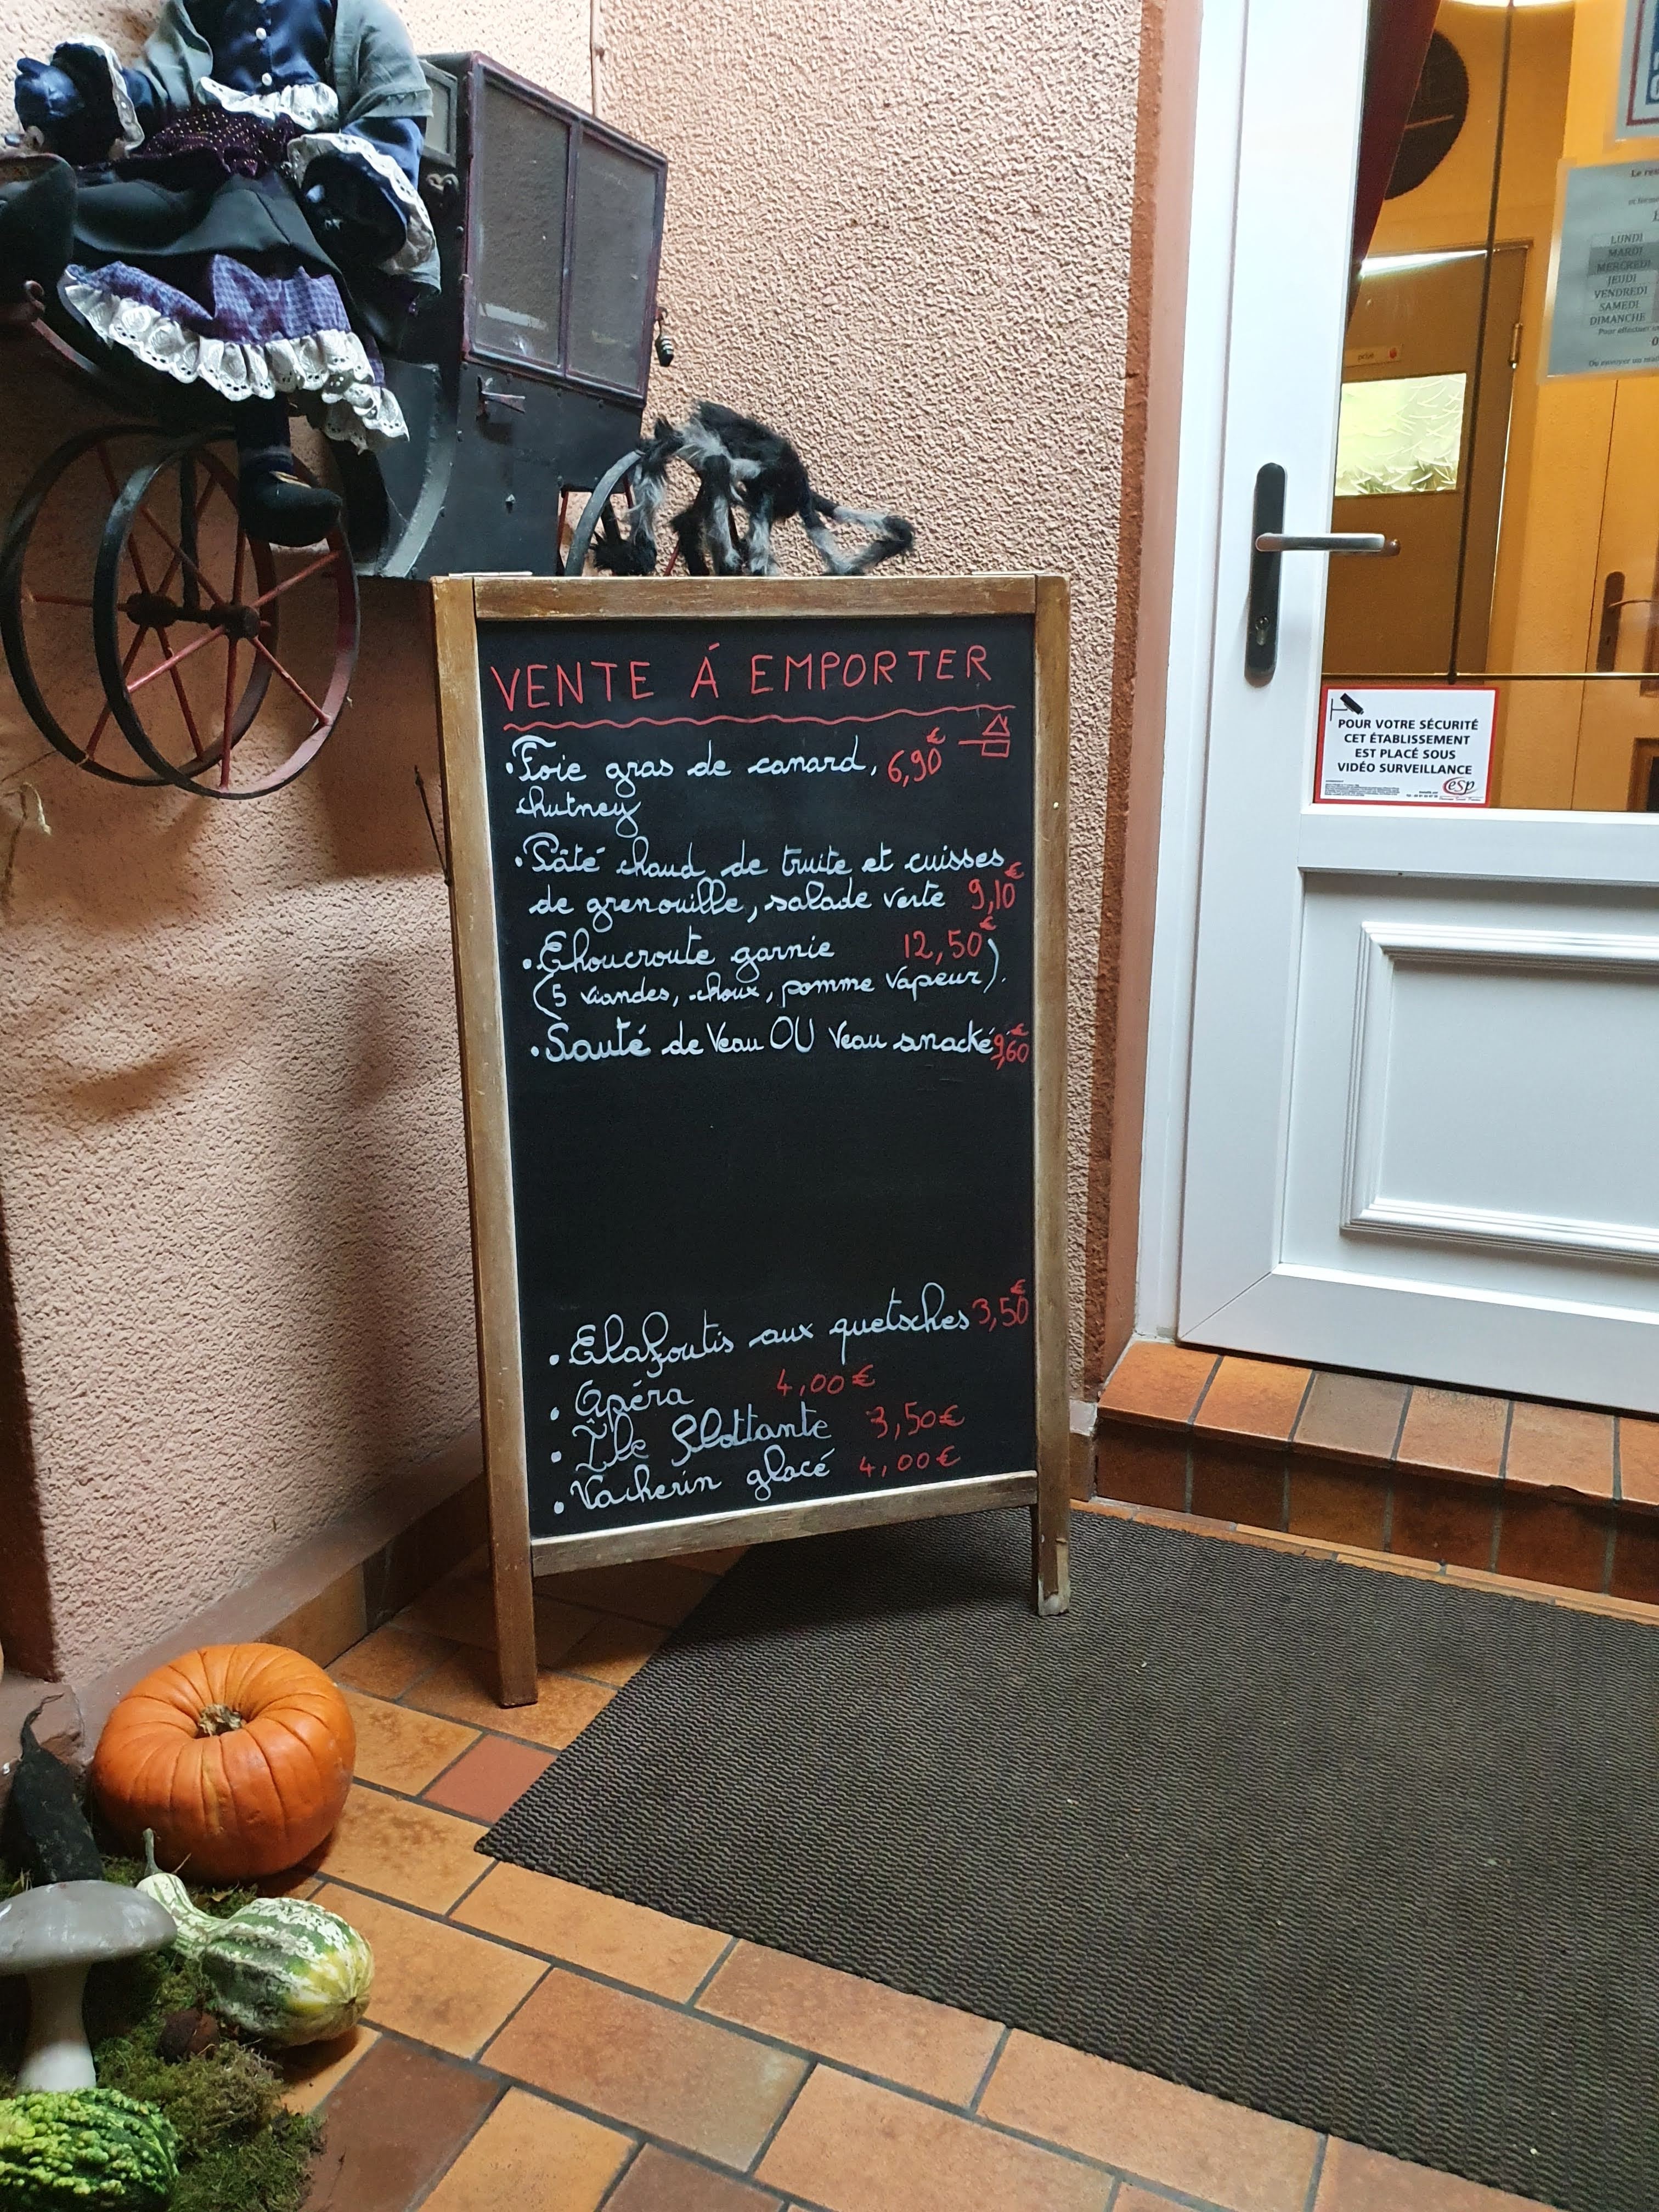 VENTE Á EMPORTER
• Foie gras de canard, 6,90€
chutney
• Pâté chaud de truite et cuisses
de grenouille, salade verte 9,10€
• Choucroute garnie 12,50€
(5 viandes, choux, pomme vapeur).
• Sauté de Veau OU Veau snacké 9,60€
• Clafoutis aux quetsches 3,50€
• Opéra 4,00€
• Île flottante 3,50€
• Vacherin glacé 4,00€
Le
LUNDI
MARDI
MERCREDI
JEUDI
VENDREDI
SAMEDI
DIMANCHE
Pour effectuer
Ou envoyer un
privé
POUR VOTRE SÉCURITÉ
CET ÉTABLISSEMENT
EST PLACÉ SOUS
VIDÉO SURVEILLANCE
esp